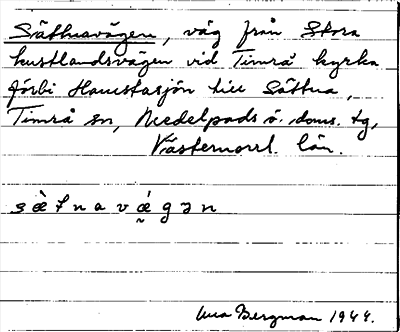 Sättnavägen, väg från Stora
kustlandsvägen vid Timrå kyrka
förbi Hamstasjön till Sättna,
Timrå sn, Medelpads ö. doms. tg,
Västernorrl. län.
sæ̀tnavǽ̰gən
Bergman 1944.